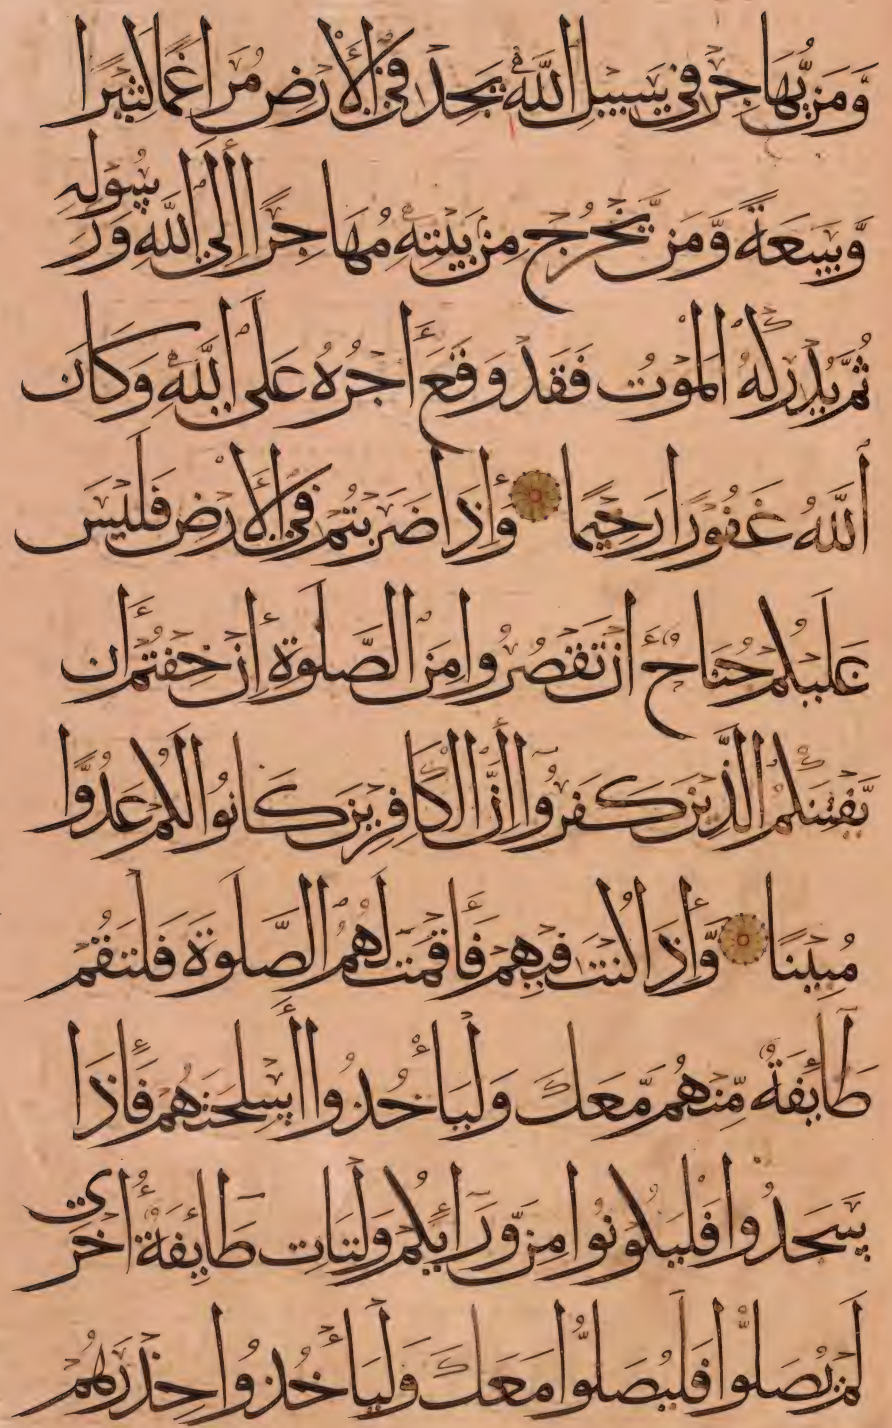 وَّمَن يُّهَاجِرْ فِي سَبِيلِ اللَّهِ يَجِدْ فِي الْأَرْضِ مُرَاغَمًا كَثِيرًا
وَّسَعَةً وَّمَن يَّخْرُجْ مِن بَيْتِهِ مُهَاجِرًا إِلَى اللَّهِ وَرَسُولِهِ
ثُمَّ يُدْرِكْهُ الْمَوْتُ فَقَدْ وَقَعَ أَجْرُهُ عَلَى اللَّهِ وَكَانَ
اللَّهُ غَفُورًا رَحِيمًا وَإِذَا ضَرَبْتُمْ فِي الْأَرْضِ فَلَيْسَ
عَلَيْكُمْ جُنَاحٌ أَن تَقْصُرُوا مِنَ الصَّلَوٰةِ إِنْ خِفْتُمْ أَن
يَّفْتِنَكُمُ الَّذِينَ كَفَرُوا إِنَّ الْكَافِرِينَ كَانُوا لَكُمْ عَدُوًّا
مُّبِينًا وَّإِذَا كُنْتَ فِيهِمْ فَأَقَمْتَ لَهُمُ الصَّلَوٰةَ فَلْتَقُمْ
طَائِفَةٌ مِّنْهُمْ مَّعَكَ وَلْيَأْخُذُوا أَسْلِحَتَهُمْ فَإِذَا
سَجَدُوا فَلْيَكُونُوا مِن وَّرَائِكُمْ وَلْتَأْتِ طَائِفَةٌ أُخْرَىٰ
لَمْ يُصَلُّوا فَلْيُصَلُّوا مَعَكَ وَلْيَأْخُذُوا حِذْرَهُمْ